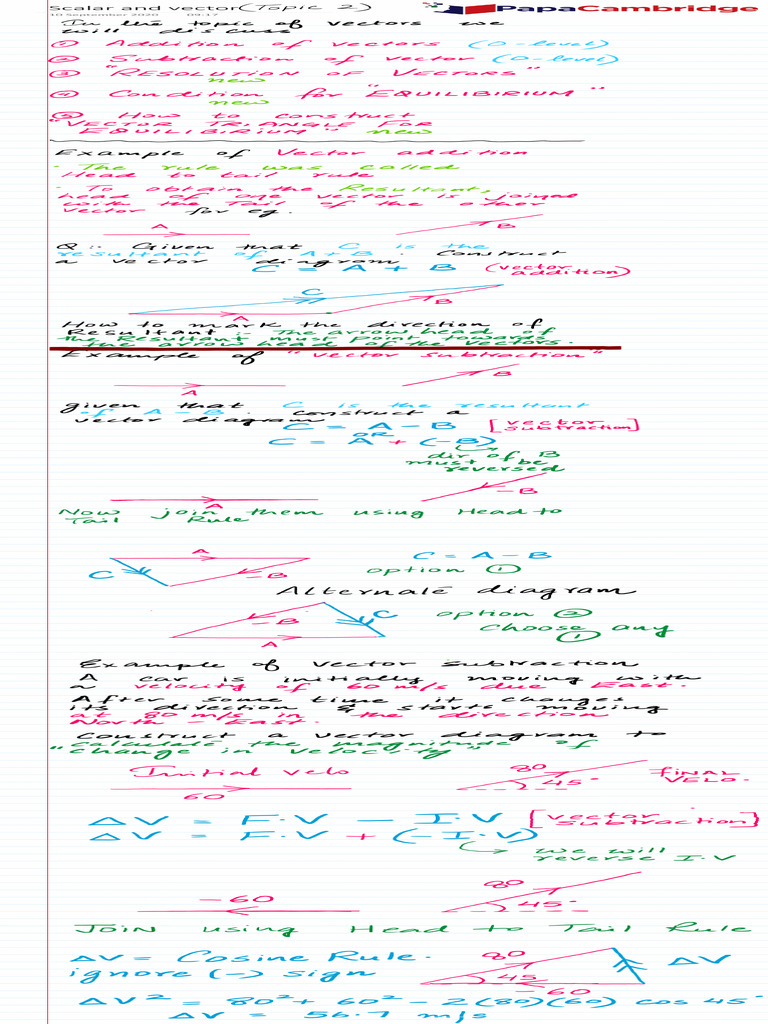 Scalar and vector (Topic 2)
PapaCambridge
10 September 2020 09:17
In the topic of vectors we
will discuss
① Addition of vectors (O-level)
② Subtraction of vector (O-level)
③ "RESOLUTION OF VECTORS"
new
④ Condition for "EQUILIBIRIUM"
new
⑤ How to construct
"VECTOR TRIANGLE FOR
EQUILIBIRIUM" new
Example of Vector addition
· The rule was called
Head to tail rule
· To obtain the Resultant,
head of one vector is joined
with the Tail of the other
vector for eg.
A
B
Q:- Given that C is the
resultant of A+B. Construct
a vector diagram
C = A + B (vector
addition)
C
A
B
How to mark the direction of
Resultant :- The arrow head of
the Resultant must point towards
the arrow head of the vectors.
Example of "vector subtraction"
A
B
given that C is the resultant
of A-B. Construct a
vector diagram
C = A - B [vector
subtraction]
OR
C = A + (-B)
dir of B
must be
reversed
A
-B
Now join them using Head to
Tail Rule
A
C
-B
C = A - B
option ①
Alternate diagram
-B
C
A
option ②
choose any
①
Example of vector subtraction
A car is initially moving with
a velocity of 60 m/s due East.
After some time it changes
its direction & starts moving
at 80 m/s in the direction
North-East.
Construct a vector diagram to
"calculate the magnitude of
change in velocity"
Initial velo
60
80
45°
FINAL
VELO.
ΔV = F.V - I.V [vector
subtraction]
ΔV = F.V + (-I.V)
we will
reverse I.V
-60
80
45°
JOIN using Head to Tail Rule
ΔV = Cosine Rule.
ignore (-) sign
80
45
-60
ΔV
ΔV² = 80² + 60² - 2(80)(60) cos 45°
ΔV = 56.7 m/s